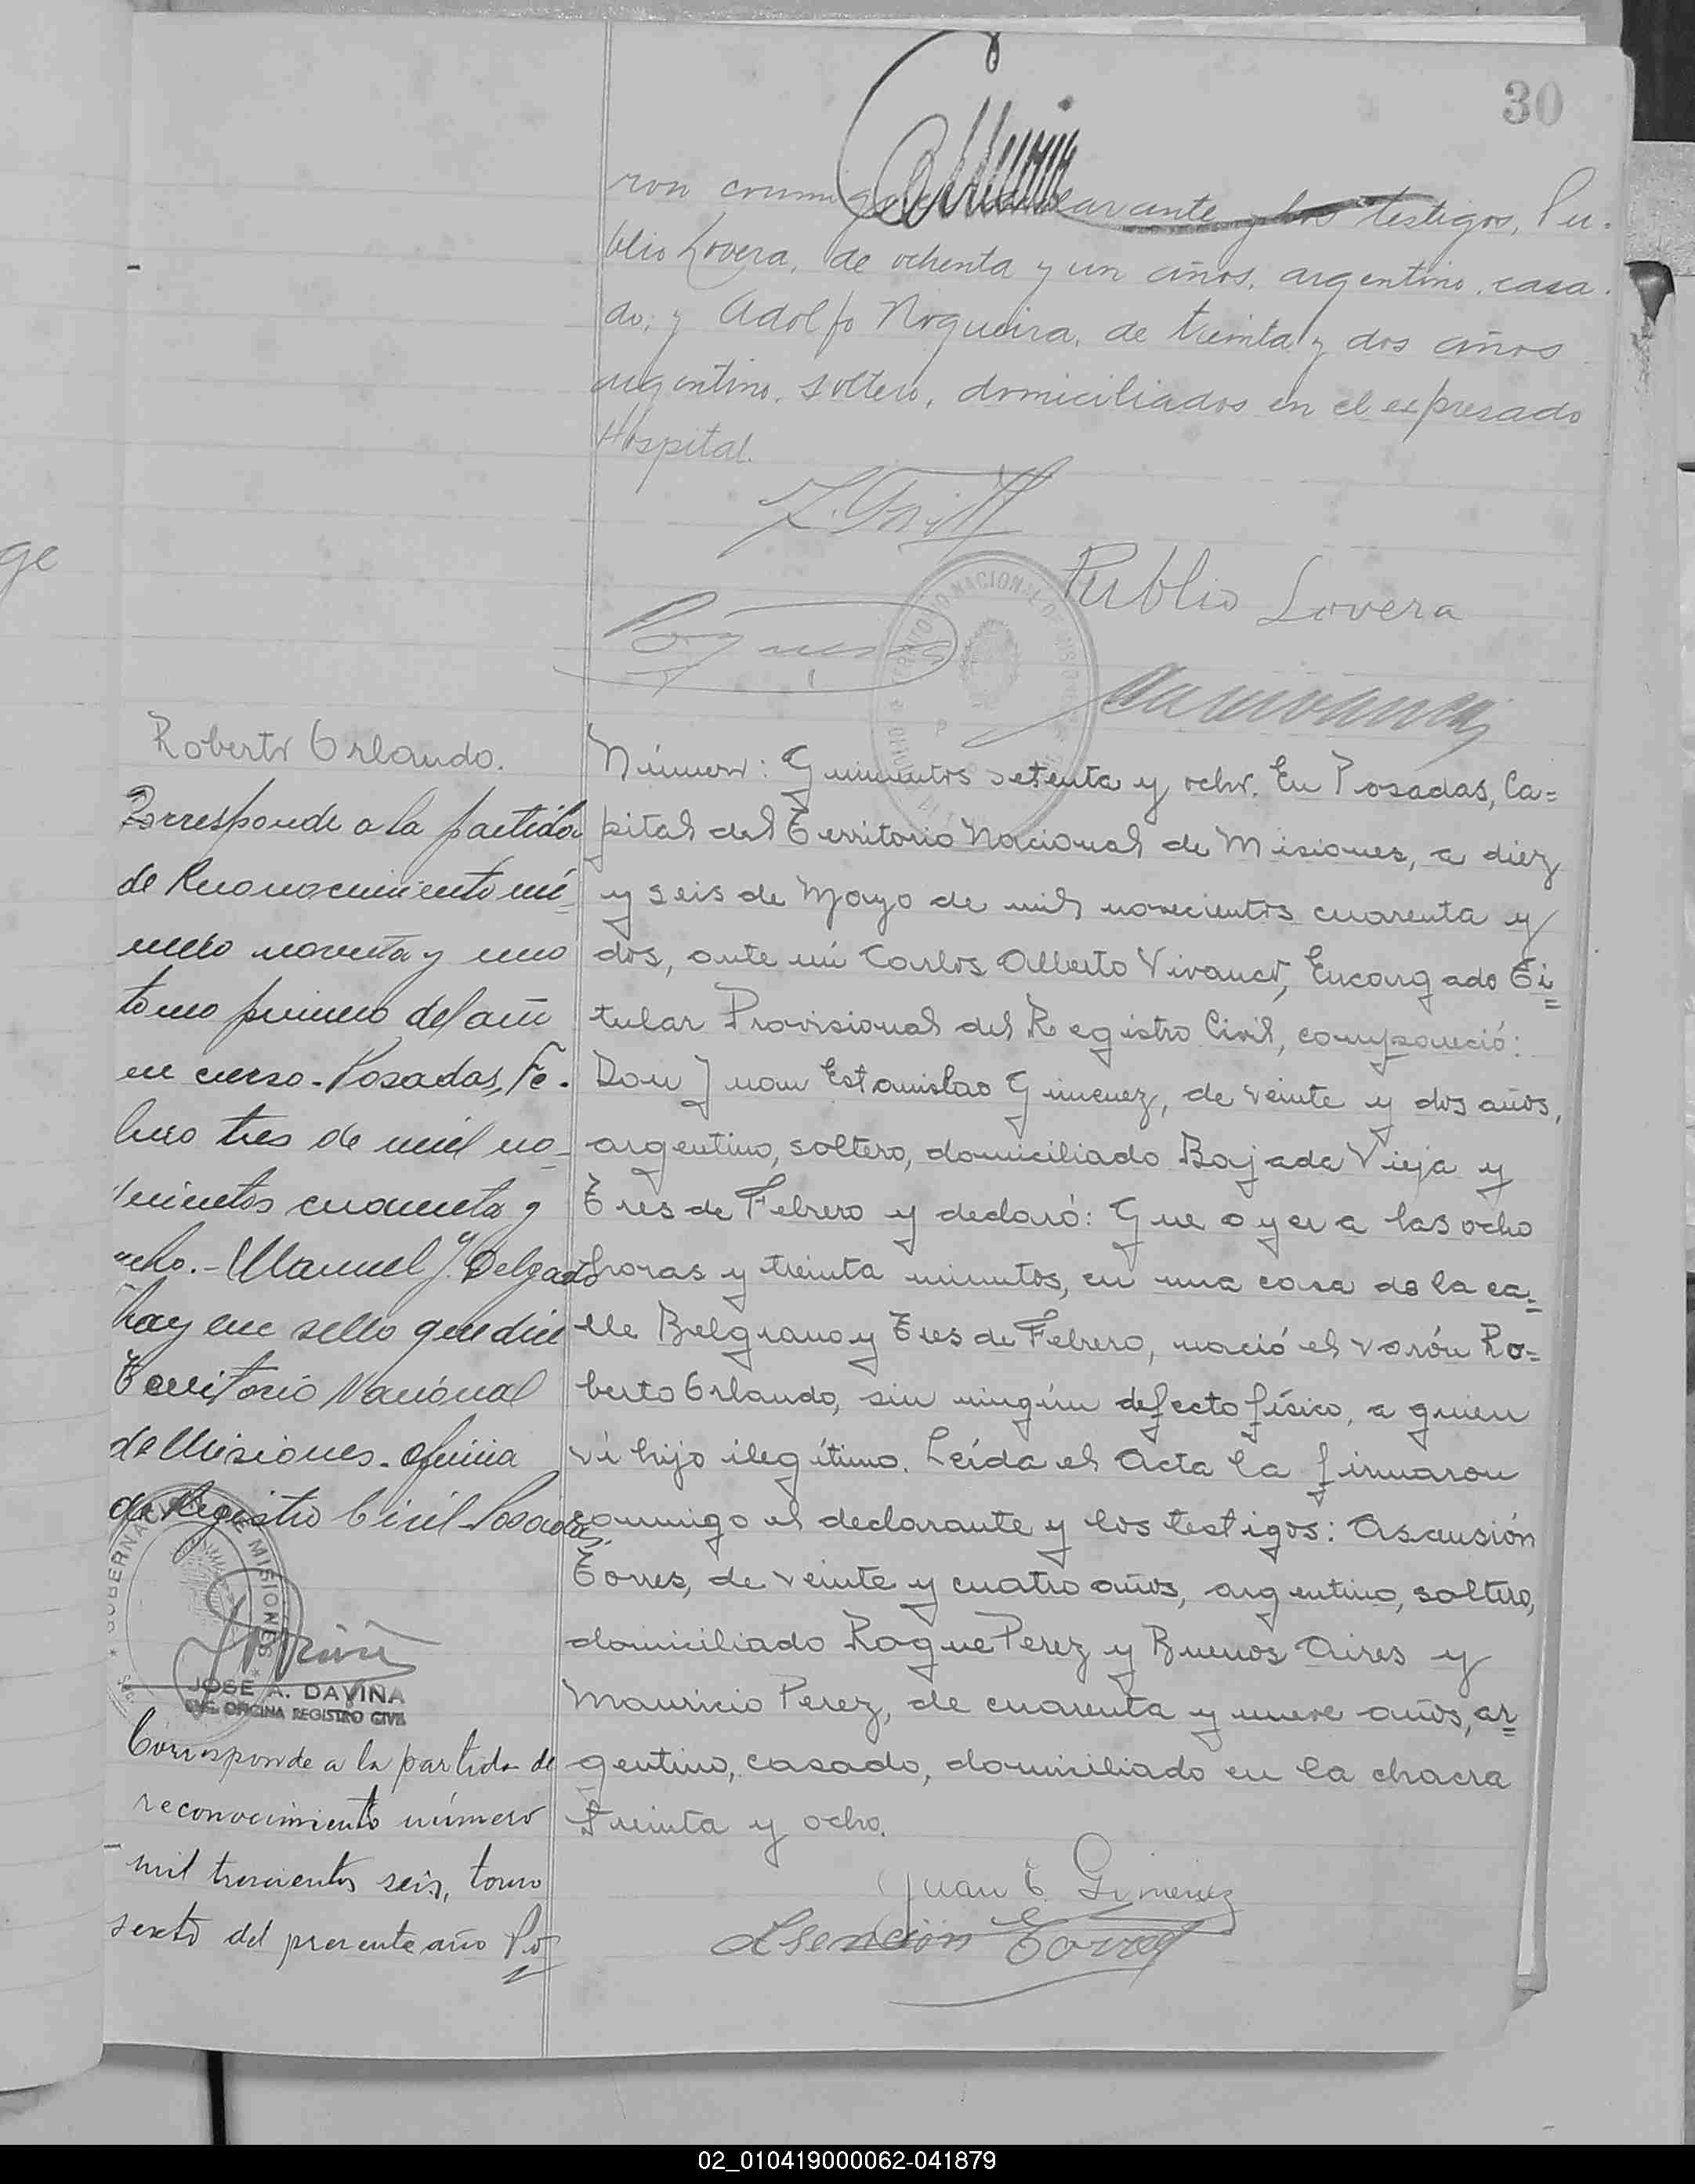 30
ron conmigo el declarante y los testigos, Pu-
blio Lovera, de ochenta y un años, argentino, casa-
do; y Adolfo Nogueira, de treinta y dos años
argentino, soltero, domiciliados en el expresado
Hospital.
Publio Lovera
Roberto Orlando.
Corresponde a la partida
de Reconocimiento nú=
mero noventa y uno
tomo primero del año
en curso. Posadas, Fe-
brero tres de mil no-
vecientos cuarenta y
ocho. - Manuel J. Delgado
hay un sello que dice
Territorio Nacional
de Misiones. Oficina
de Registro Civil Posadas.
GOBERNACION DE MISIONES
JOSE A. DAVIÑA
ENC. OFICINA REGISTRO CIVIL
Corresponde a la partida de
reconocimiento número
mil trescientos seis, tomo
sexto del presente año Po=
Número: Quinientos setenta y ocho. En Posadas, Ca=
pital del Territorio Nacional de Misiones, a diez
y seis de Mayo de mil novecientos cuarenta y
dos, ante mí Carlos Alberto Vivanco, Encargado Ti=
tular Provisional del Registro Civil, compareció:
Don Juan Estanislao Gimenez, de veinte y dos años,
argentino, soltero, domiciliado Bajada Vieja y
Tres de Febrero y declaró: Que ayer a las ocho
horas y treinta minutos, en una casa de la ca=
lle Belgrano y Tres de Febrero, nació el varón Ro=
berto Orlando, sin ningún defecto físico, a quien
ví hijo ilegítimo. Leída el Acta la firmaron
conmigo el declarante y los testigos: Ascensión
Torres, de veinte y cuatro años, argentino, soltero,
domiciliado Roque Perez y Buenos Aires y
Mauricio Perez, de cuarenta y nueve años, ar=
gentino, casado, domiciliado en la chacra
treinta y ocho.
Juan E. Gimenez
Asención Torres
02_010419000062-041879